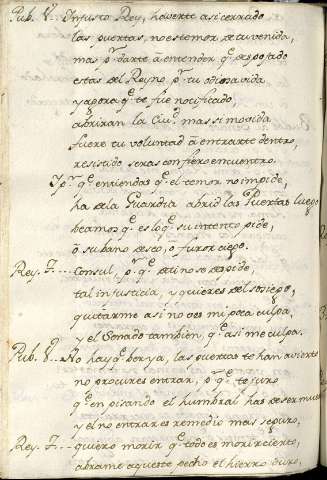 Pub. V.. Injusto Rey, haverte asi cerrado
las puertas, no es temor de tu venida,
mas pr. darte â entender q.e despojado
estas del Reyno pr. tu vida
y aora q.e te fue notificado,
abriran la Ciu.d mas si movida
fuere tu voluntad â entrarte dentro,
resistido seras con fiero encuentro.
Ypr. q.e entiendas q.e el temor no impide,
ha de la Guardia abrid las Puertas luego
beamos q.e es loq.e su intento pide,
ô su bano deseo, o furor ciego.
Rey. T.... Consul, pr. q.e de ti no se despide,
tal injusticia, y quieres del sosiego,
quitarme asi no ves mi poca culpa,
y el Senado tambien, q.e asi me culpa.
Pub. V.. No hay q.e ber ya, las puertas te han avierto
no procures entrar, pr. q.e te juro
q.e en pisando el humbral has de ser muerto
y el no entrar es remedio mas seguro,
Rey. T.... quiero morir q.e todo es morir cierto,
abrame aqueste pecho el hierro duro,